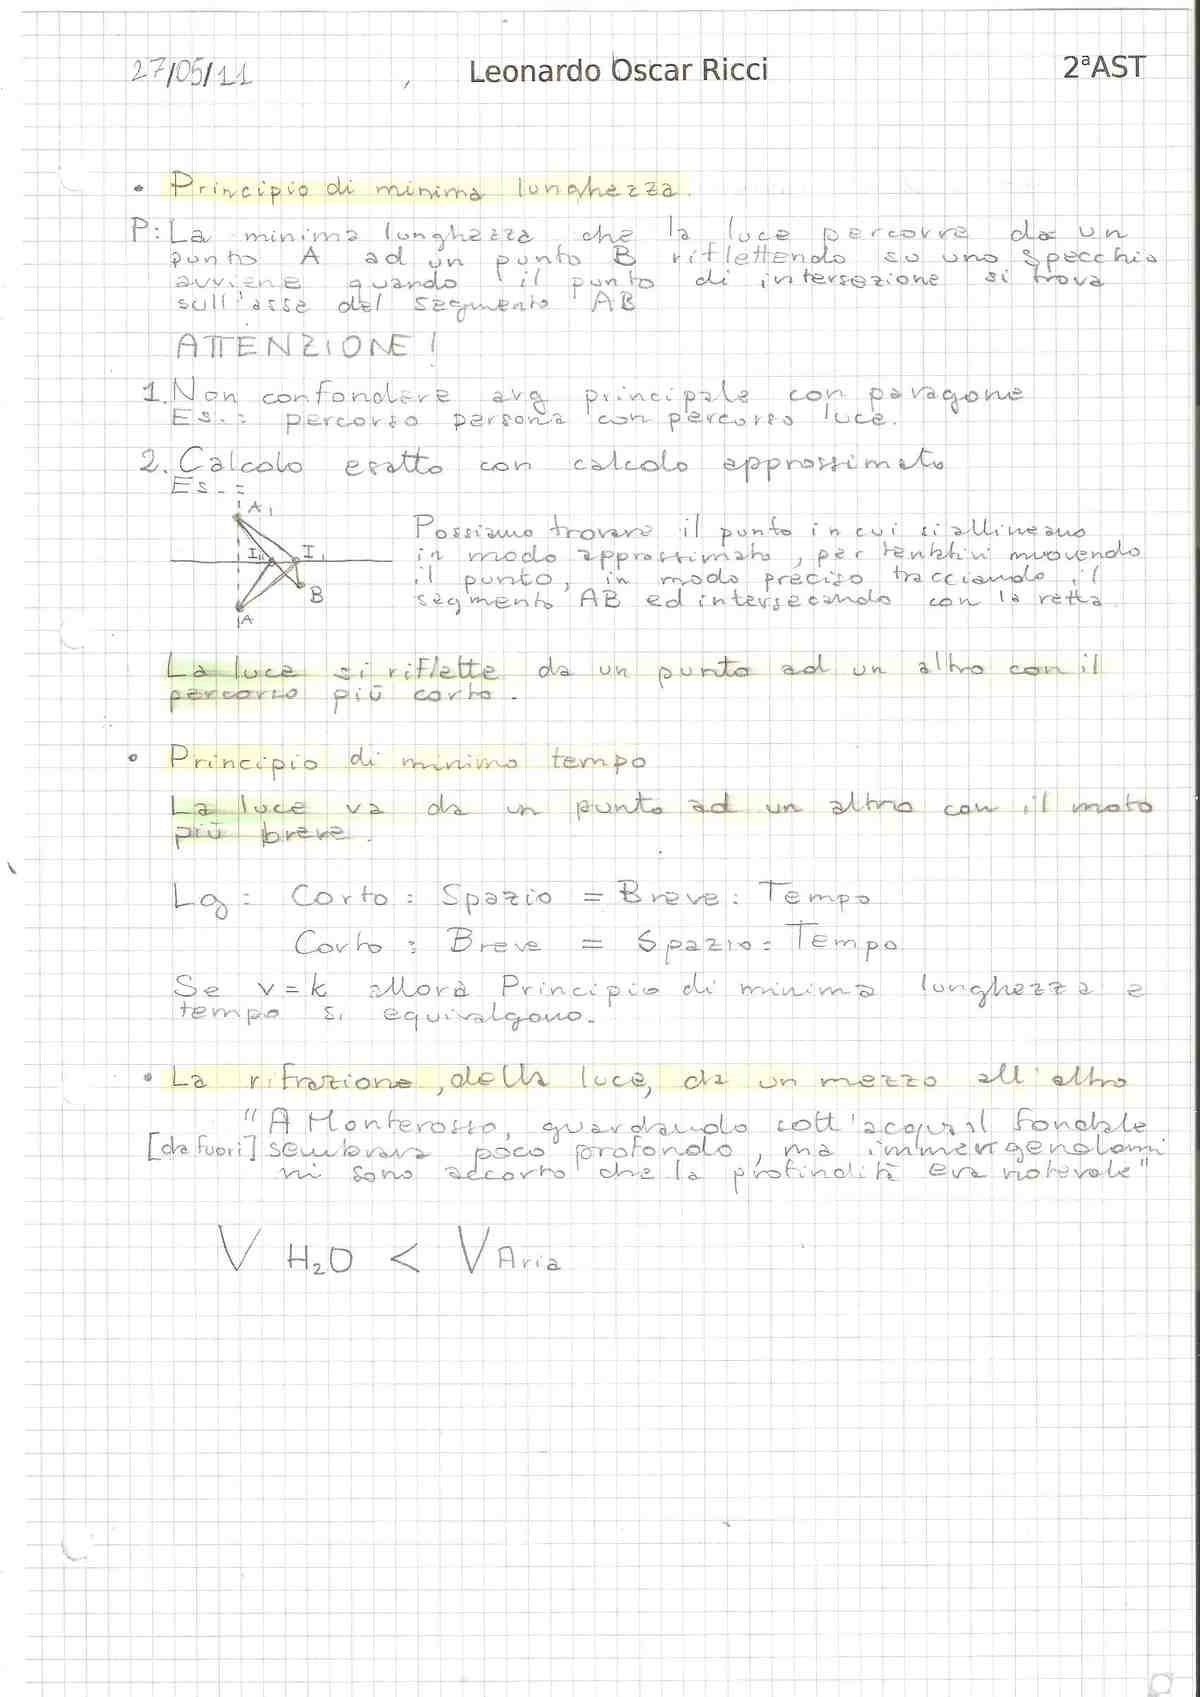 27/05/11 Leonardo Oscar Ricci 2ªAST
• Principio di minima lunghezza.
P: La minima lunghezza che la luce percorre da un
punto A ad un punto B riflettendo su uno specchio
avviene quando il punto di intersezione si trova
sull'asse del segmento AB
ATTENZIONE!
1. Non confondere arg principale con paragone
Es.: percorso persona con percorso luce.
2. Calcolo esatto con calcolo approssimato
Es.:
A1
I I1
B
A
Possiamo trovare il punto in cui si allineano
in modo approssimato, per tentativi muovendo
il punto, in modo preciso tracciando il
segmento AB ed intersecando con la retta.
La luce si riflette da un punto ad un altro con il
percorso più corto.
• Principio di minimo tempo
La luce va da un punto ad un altro con il moto
più breve.
Lg: Corto : Spazio = Breve : Tempo
Corto : Breve = Spazio : Tempo
Se v=k allora Principio di minima lunghezza e
tempo si equivalgono.
• La rifrazione, della luce, da un mezzo all'altro
"A Monterosso, guardando sott'acqua il fondale
[da fuori] sembrava poco profondo, ma immergendomi
mi sono accorto che la profindità era notevole"
V H2O < V Aria